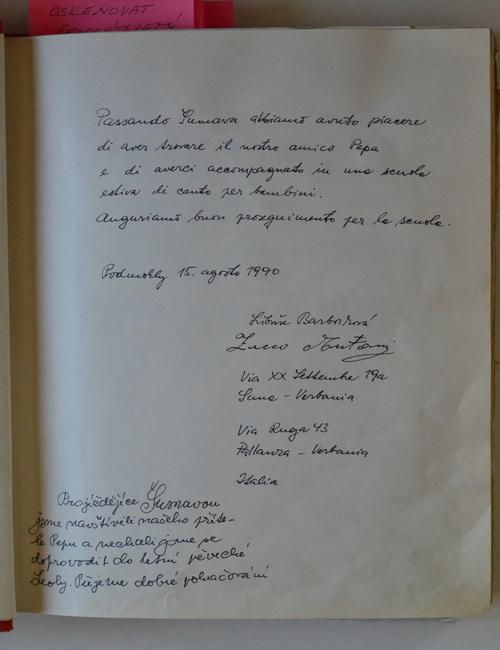 OSKENOVAT
Passando Šumava abbiamo avuto piacere
di aver trovare il nostro amico Pepa
e di averci accompagnato in una scuola
estiva di canto per bambini.
Auguriamo buon proseguimento per la scuola.
Podmokly 15. agosto 1990
Libuše
Via XX Settembre 19a
Suna - Verbania
Via Ruga 43
Pallanza - Verbania
Italia
Projíždějíce Šumavou
jsme navštívili našeho příte-
le Pepu a nechali jsme se
doprovodit do letní pěvecké
školy. Přejeme dobré pokračování